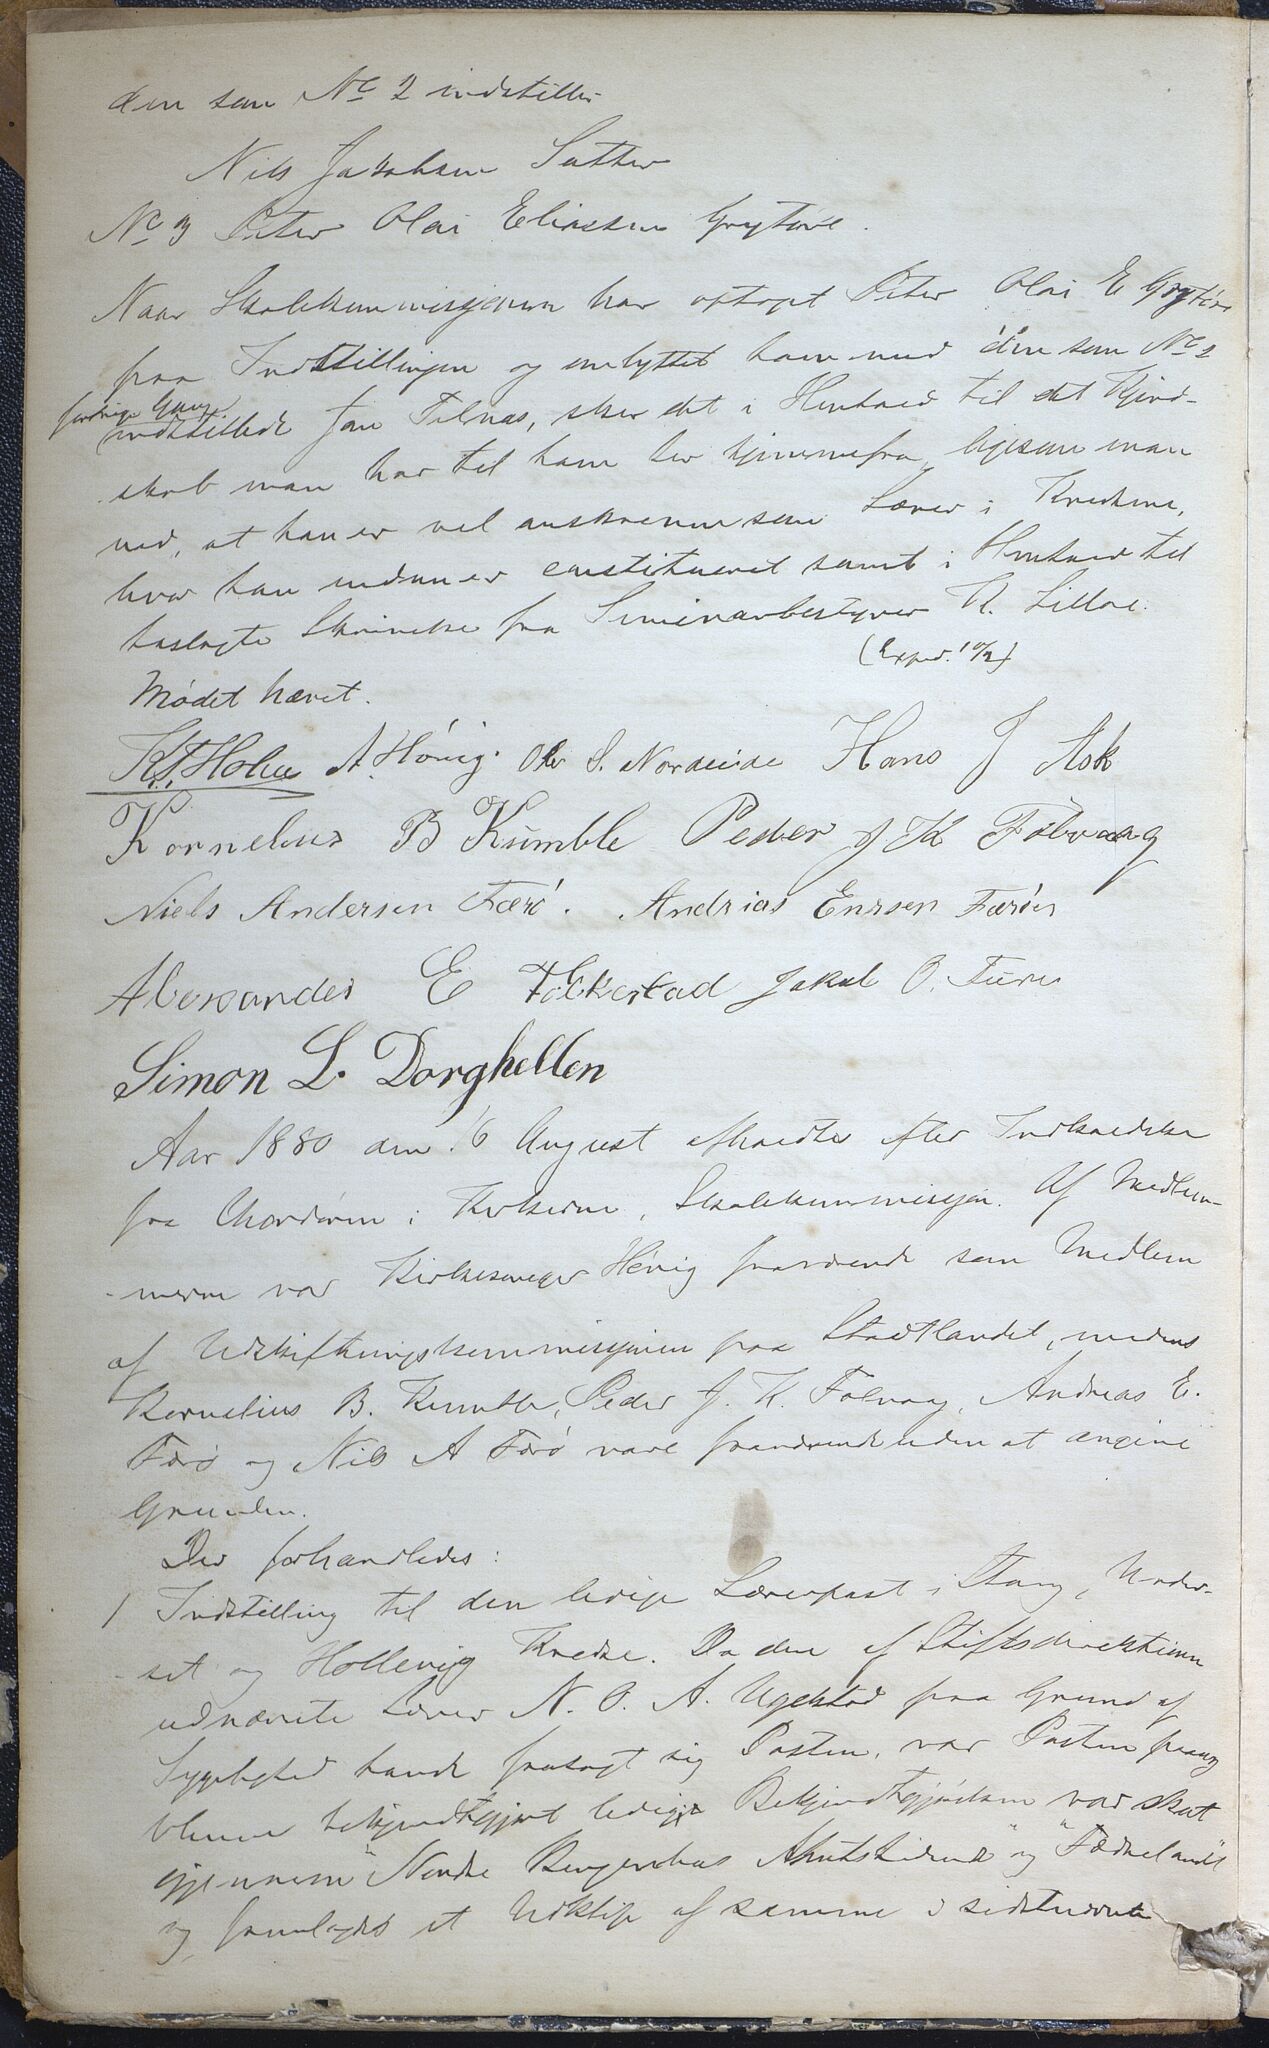 den som No 2 indstilles
Nils Jakobsen Sætter
No 3 Peter Olai Eliassen Grytøre.
Naar Skolekommissjonen har optaget Peter Olai E Grytøre
paa Indstillingen og ombyttet ham med den som No 2
forrige Gang
indstillede Jon Tilnæs, sker det i Henhold til det Kjend-
skab man har til ham her hjemmefra ligesom man
ved, at han er vel anskreven som Lærer i Kredsene,
hvor han nu er constitueret samt i Henhold til
Skrivelse fra Seminarbestyrer K. Lilloe.
(Exped. 10/2)
Mødet hævet.
K.J. Holm A. Hövig. Ole S. Nordeide Hans J Ask
Kornelius B Kumble Peder J K Folvaag
Niels Andersen Færö. Andrias Enssen Færöen
Alexander E Folkestad Jakob O. Fure
Simon L. Dorghellen
Aar 1880 den 16 August afholdtes efter Indkaldelse
fra Ordføreren i Kirkerne, Skolekommissjon. Af Medlem-
merne var Kirkesanger Hövig fraværende som Medlem
af Udskiftningskommissjonen paa Stadtlandet, medens
Kornelius B. Kumble, Peder J. K. Folvaag, Andreas E.
Færø og Nils A Færø vare fraværende uden at angive
Grunden.
Der forhandledes:
1 Indstilling til den ledige Lærerpost i Stang, Under-
set og Hollevig Kredse. Da den af Stiftsdirektionen
udnævnte Lærer N. O. A. Ugelstad paa Grund af
Sygelighed havde frasagt sig Posten, var Posten paany
bleven bekjendtgjort ledig. Bekjendtgjørelsen var skeet
gjennem "Nordre Bergenhus Amtstidende" og "Fædrelandet"
og fremlagdes et Udklip af samme i sidstnævnte